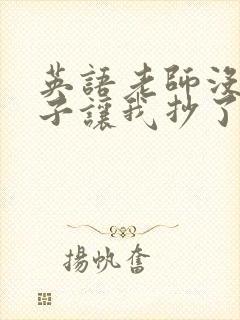 英語老師沒
子讓我抄了
揚帆奮